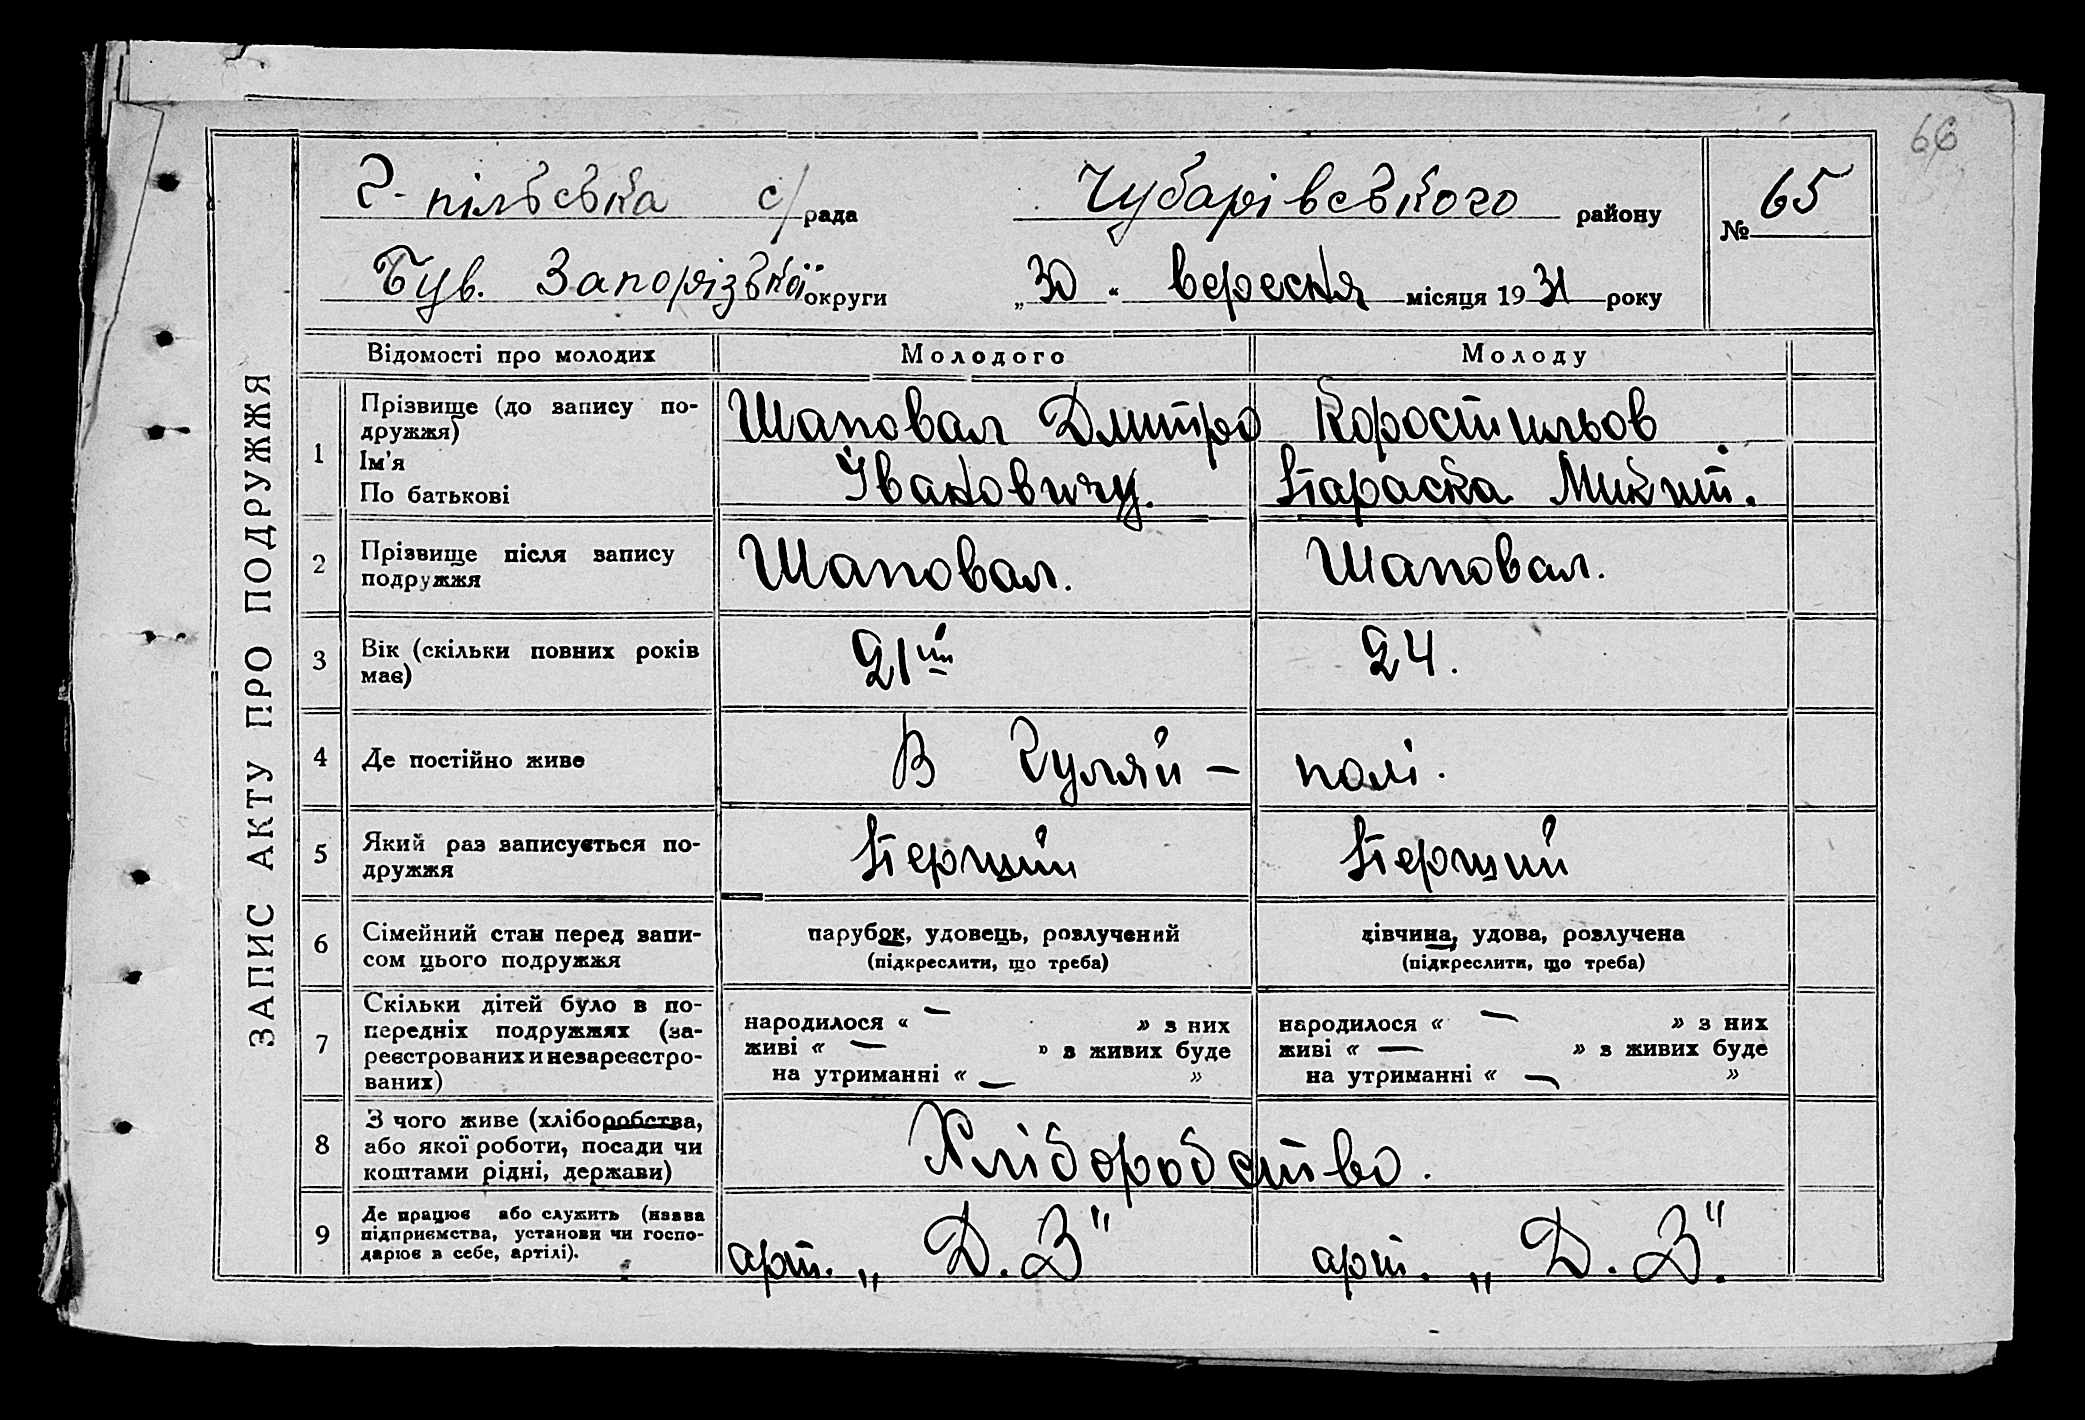 66
ЗАПИС АКТУ ПРО ПОДРУЖЖЯ
Г-пільська с/рада Чубарівського району № 65
Був. Запорізької округи „30“ вересня місяця 1931 року
Відомості про молодих Молодого Молоду
1 Прізвище (до запису по-
дружжя)
Ім'я
По батькові
Шаповал Дмитро
Івановичу.
Коростильов
Параска Микит.
2 Прізвище після запису
подружжя
Шаповал. Шаповал.
3 Вік (скільки повних років
має)
21ий 24.
4 Де постійно живе В Гуляй- полі.
5 Який раз записується по-
дружжя
Перший Перший
6 Сімейний стан перед запи-
сом цього подружжя
парубок, удовець, розлучений
(підкреслити, що треба)
дівчина, удова, розлучена
(підкреслити, що треба)
7 Скільки дітей було в по-
передніх подружжях (за-
реєстрованих и незареєстро-
ваних)
народилося « — » з них
живі « — » з живих буде
на утриманні « — »
народилося « — » з них
живі « — » з живих буде
на утриманні « — »
8 З чого живе (хліборобства,
або якої роботи, посади чи
коштами рідні, держави)
Хлібородство.
9 Де працює або служить (назва
підприємства, установи чи госпо-
дарює в себе, артілі).
арт. „Д. З" арт. „Д. З".